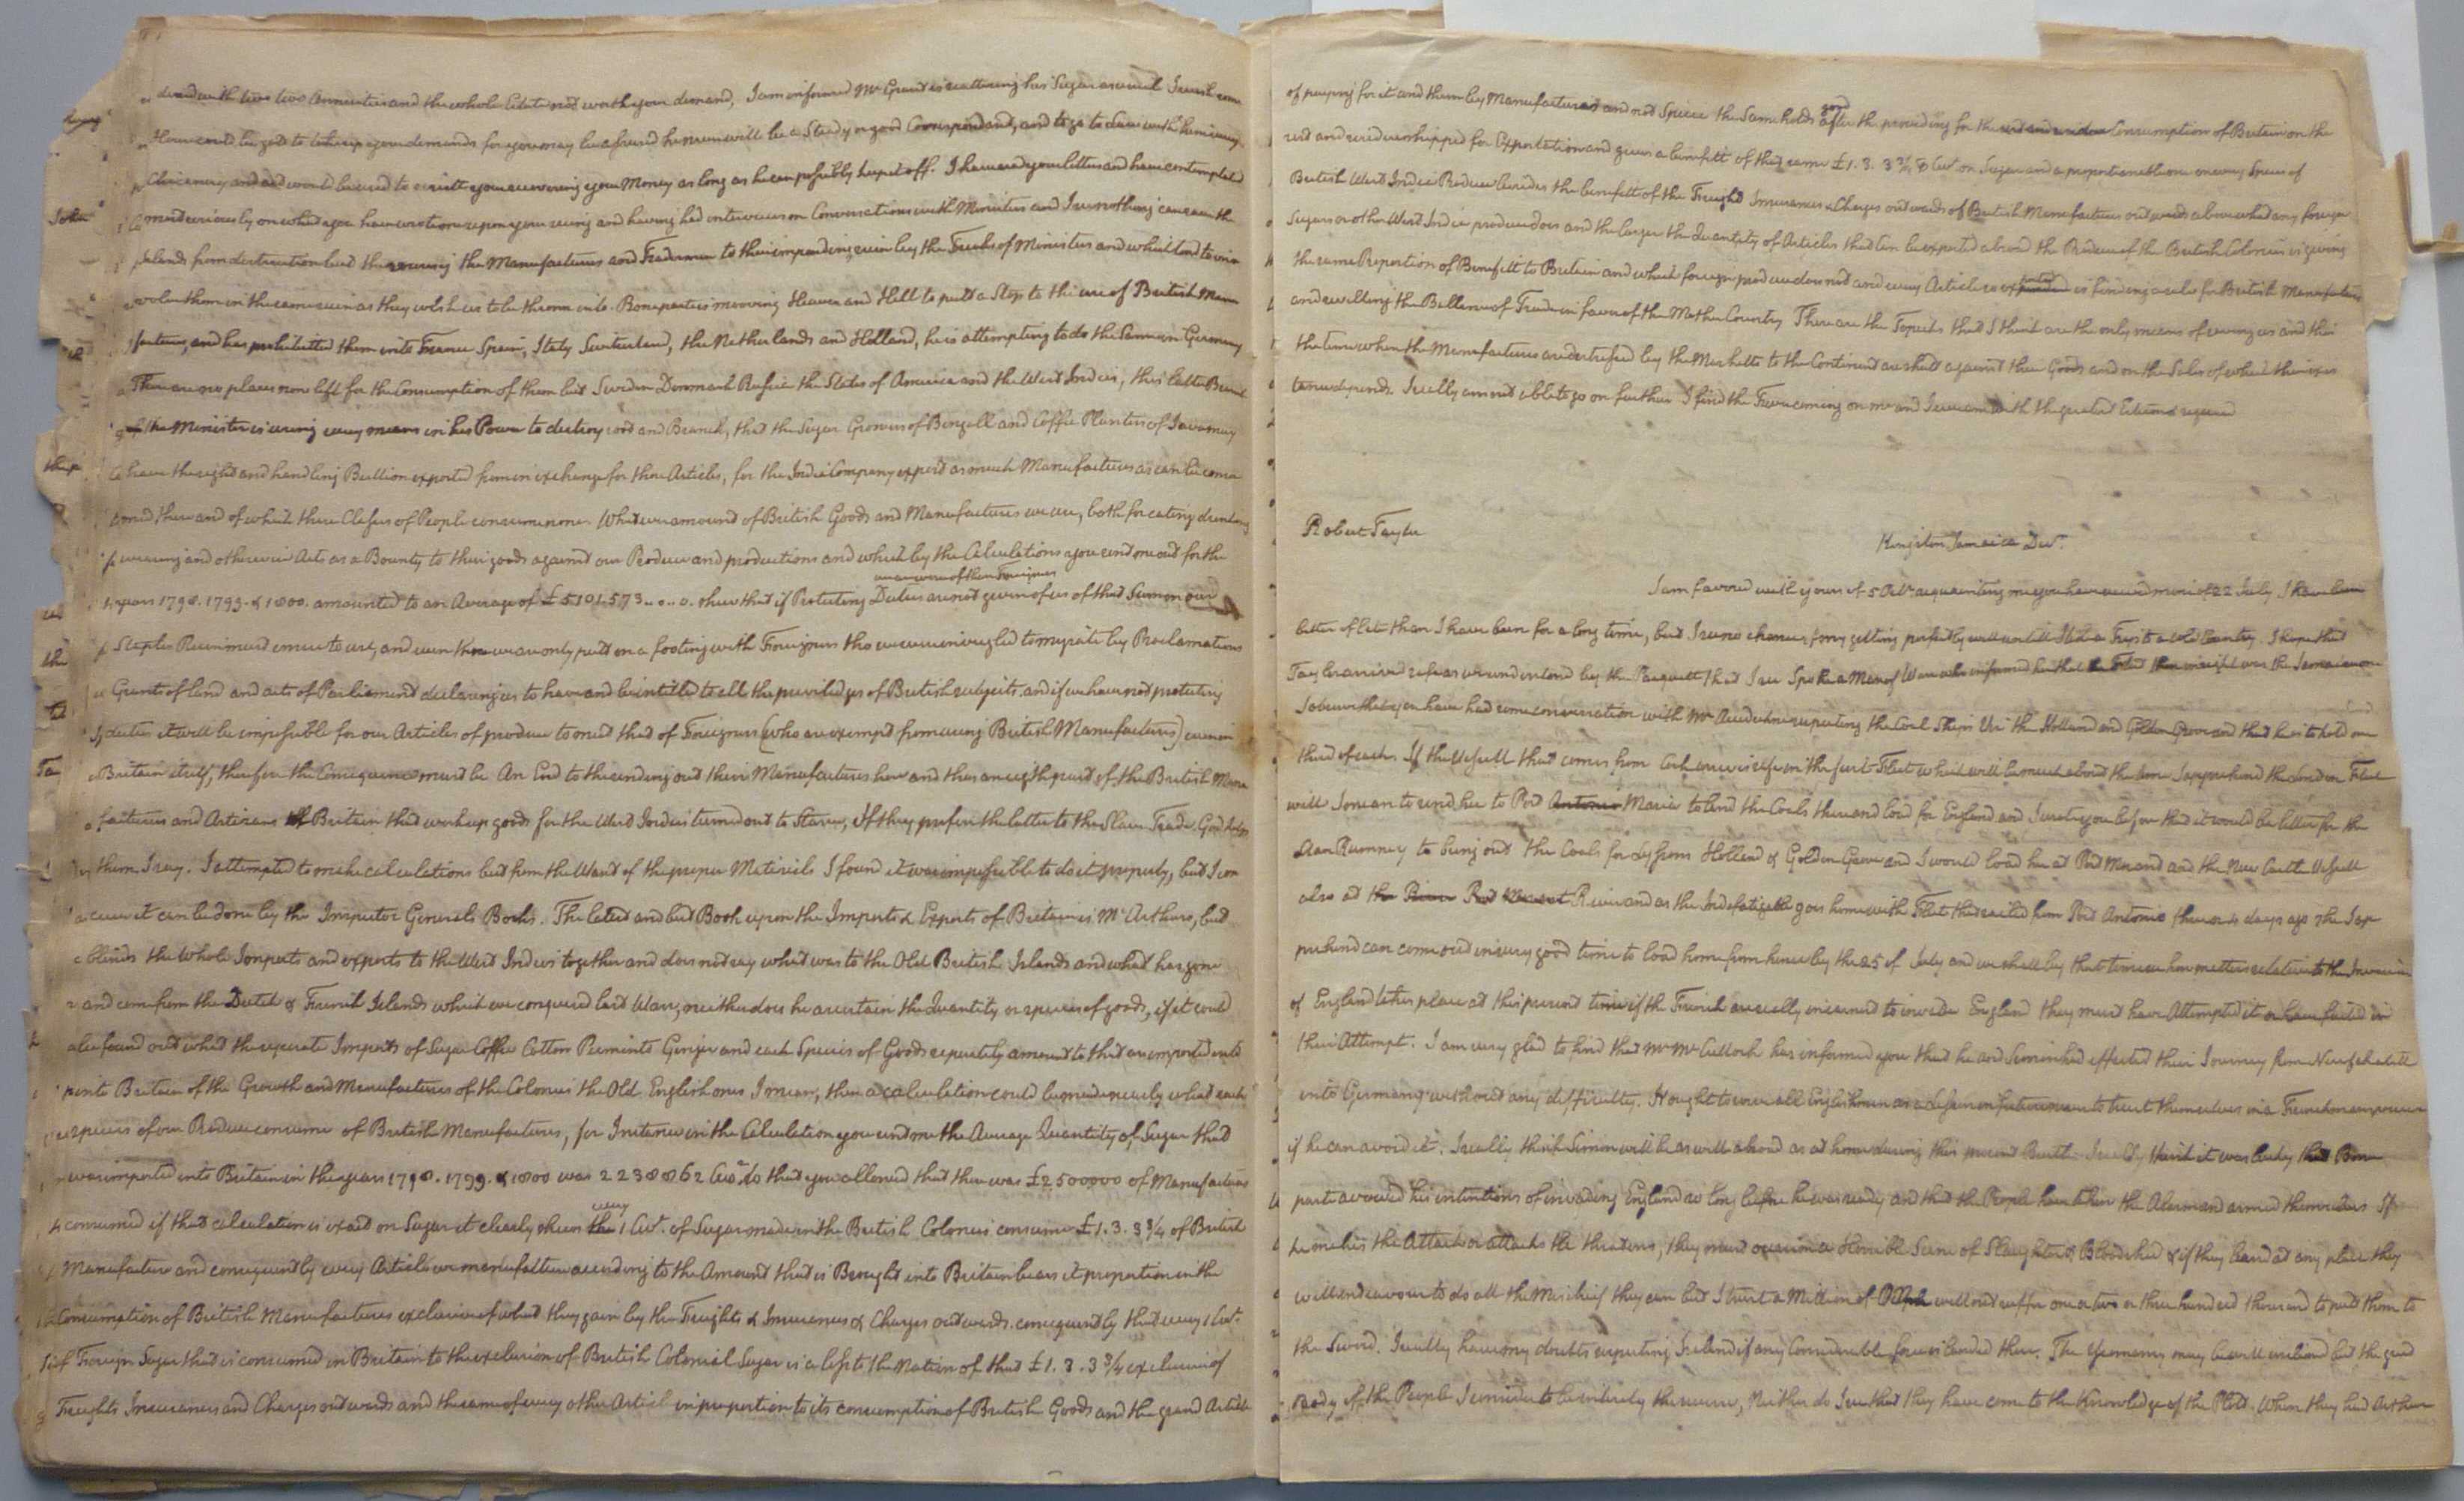 dered with two two Annuities and the whole Estate not worth your demand, I am informed Mr Grant is
could be got to take up your demands for you may be assured he never will be a Steady or good Correspondant, and to go to Law with him every
Chicanery and would be used to your recovering your Money as long as he can possibly keep it off. I have read your letters and have contemplated
most seriously on what you have wrote me upon your seeing and having had interviews or Conversations with Ministers and I see nothing can save the
Islands from destruction but the rousing the Manufacturers and Tradesmen to their impending ruin by the of Ministers and which tend to in
volve them in the same ruin as they wish us to be thrown into. Bonaparte is mooving Heaven and Hell to putt a Stop to the use of British Manu
factures, and has prohibitted them into France Spain, Italy Switzerland, the Netherlands and Holland, he is attempting to do the Same in Germany
There are no places now left for the Consumption of them but Sweden Denmark Russia the States of America and the West Indies, this latter
the Minister is using every means in his Power to destroy root and Branch, that the Sugar Growers of Bengall and Coffee Planters of Java may
have the right and handling Bullion exported from in exchange for those Articles, for the India Company export as much Manufactures as can be consu
med there and of which these Classes of People consume none. Whatever amount of British Goods and Manufactures we use, both for eating drinking
wearing and otherwise Acts as a Bounty to their goods against our Produce and productions and which by the Calculations you sent me out for the
years 1798. 1799. & 1800. amounted to an Average of £5101573..0..0. shew that if Protecting Duties are not given of us of that Sum on our
Staples Ruin must ensue to us, and even then we are only putt on a footing with Foreigners tho we were inveigled to migrate by Proclamations
Grants of land and acts of Parliament declaring us to have and be intitled to all the priviledges of British subjects and if we have not protecting
duties it will be impossible for our Articles of produce to meet that of Foreigners (who are exempt from using British Manufactures) even in
Britain itself, therefore the Consequence must be An End to the sending out their Manufactures here and thus an eighth part of the British Manu
factures and Artizans of Britain that work up goods for the West Indies turned out to Starve, If they prefer the latter to the Slave Trade God help
them I say. I attempted to make calculations but from the Want of the proper Materials I found it was impossible to do it properly, but I am
sure it can be done by the Inspector Generals Books. The latest and best Book upon the Imports & Exports of Britain is McArthurs, but
blends the Whole Imports and exports to the West Indies together and does not say what was to the Old British Islands and what has gone
and come from the Dutch & French Islands which we conquered last War, neither does he ascertain the Quantity or species of goods, if it could
be found out what the seperate Imports of Sugar Coffee Cotton Pimento Ginger and each Species of Goods seperately amount to that are imported into
into Britain of the Growth and Manufactures of the Colonies the Old English ones I mean, then a calculation could be made nearly what each
species of our Produce consume of British Manufactures, for Instance in the Calculation you sent me the Average Quantity of Sugar that
was imported into Britain in the years 1798. 1799. & 1800 was 2238862 Cwt. to that you allowed that there was £2500000 of Manufactures
consumed if that calculation is exact on Sugar it clearly shews every 1 Cwt. of Sugar made in the British Colonies consume £1.3.3¾ of British
Manufacture and consequently every Article we manufacture according to the Amount that is Brought into Britain bears it proportion in the
Consumption of British Manufactures exclusive of what they gain by the Freights & Insurances & Charges outwards. consequently that every 1 Cwt.
of Foreign Sugar that is consumed in Britain to the exclusion of British Colonial Sugar is a loss to the Nation of that £1.3.3¾ exclusive of
Freights Insurances and Charges outwards and the same of every other Article in proportion to its consumption of British Goods and the grand Article
of paying for it and them by Manufactures and not Specie the Same holds good after the providing for the Consumption of Britain on the
rest and residue shipped for Exportation and gives a benefitt of that same £1.3.3¾ Cwt. on Sugar and a proportionable one on every Species of
British West India Produce besides the benefitt of the Freight Insurances & Charges outwards of British Manufactures outwards above what any foreign
Sugars or other West India produce does and the larger the Quantity of Articles that can be exported abroad the Produce of the British Colonies is giving
the same Proportion of Benefitt to Britain and which foreign produce does not and every Article so exported is finding a sale for British Manufactures
and swelling the Ballance of Trade in favor of the Mother Country These are the Topicks that I think are the only means of saving us and this
the time when the Manufactures are distressed by the Marketts to the Continent are shutt against their Goods and on the Sales of which their exis
tence depends. I really am not able to go on further I find the Fever coming on me and I remain with the greatest Esteem & regard
Robert Taylor
Kingston Jamaica Decr.
I am favored with yours of 5 Octr. acquainting me you have received mine of 22 July I have been
better of late than I have been for a long time, but I see no chance of my getting perfectly well untill I take a Trip to a Cold Country. I hope that
Taylor arrived safe as we understand by the Pacquett that I see Spoke a Man of War who informed her that the Fleet was the Jamaica one
I observe that you have had some conversation with Mr respecting the Coal Ships Vizt the Holland and Golden Grove and that he is to hold one
third of each. If the Vessell that comes from Cork arrives safe in the first Fleet which will be much about the time I apprehend the London Fleet
will I mean to send her to Port Maria to land the Coals there and load for England and I wrote you before that it would be better for the
Ann Rumney to bring out the Coals for Lyssons Holland & Golden Grove and I would load her at Port Morant and the New Castle Vessell
also at River and as the Indefatigable goes home with Fleet that sailed from Port Antonio three or 4 days ago she I ap
prehend can come out in very good time to load home from hence by the 25 of July and we shall by that time see how matters relative to the Invasion
of England takes place at this present time if the French are really inclined to invade England they must have Attempted it or have failed in
their Attempt. I am very glad to find that Mr McCulloch has informed you that he and Simon had effected their Journey from Neufchatell
into Germany without any difficulty. It ought to serve all Englishmen as a Lesson in future never to trust themselves in a Frenchmans power
if he can avoid it. I really think Simon will be as well abroad as at home during this present Bustle. I really think it was lucky that Bona
parte avowed his intentions of invading England so long before he was ready and that the People have taken the Alarm and armed themselves If
he makes the Attack or attacks he threatens, they must occasion a Horrible Scene of Slaughter & Bloodshed & if they land at any place they
will endeavour to do all the Mischief they can but I trust a Million of Men will not suffer one or two or three hundred thousand to putt them to
the Sword. I really have my doubts respecting Ireland if any Considerable force is landed there. The Yeomanry may be well inclined but the great
Body of the People I consider to be intirely the reverse, Neither do I see that they have come to the Knowledge of the Plott. When they had Arthur